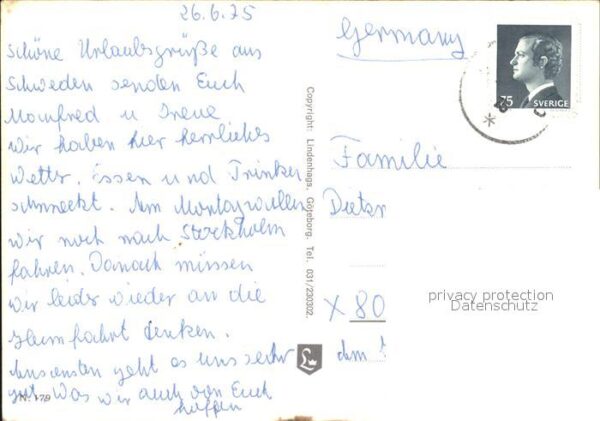 26.6.75
Schöne Urlaubsgrüße aus
Schweden senden Euch
Manfred u Irene
Wir haben hier herrliches
Wetter. Essen und Trinken
schmeckt. Am Montag wollen
wir noch nach Stockholm
fahren. Danach müssen
wir leider wieder an die
Heimfahrt denken.
Ansonsten geht es uns sehr
gut. Was wir auch von Euch
hoffen
179
Copyright: Lindenhags, Göteborg. Tel. 031/230302.
L
Germany
75 SVERIGE
Familie
Dieter
X 80
privacy protection
Datenschutz